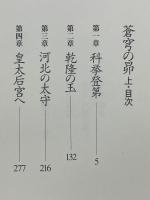 蒼穹の昴 上・目次
第一章 科挙登第 5
第二章 乾隆の玉 132
第三章 河北の太守 216
第四章 皇太后宮へ 277